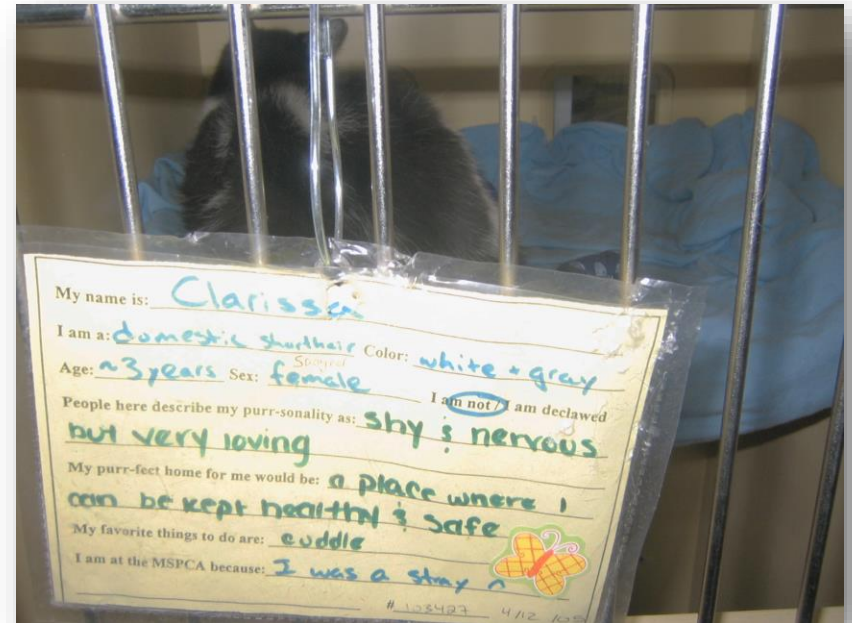 My name is: Clarissa
I am a: domestic shorthair Color: white + gray
Spayed
Age: ~3 years Sex: female I am not / I am declawed
People here describe my purr-sonality as: shy & nervous
but very loving
My purr-fect home for me would be: a place where I
can be kept healthy & safe
My favorite things to do are: cuddle
I am at the MSPCA because: I was a stray
# 103427 4/12